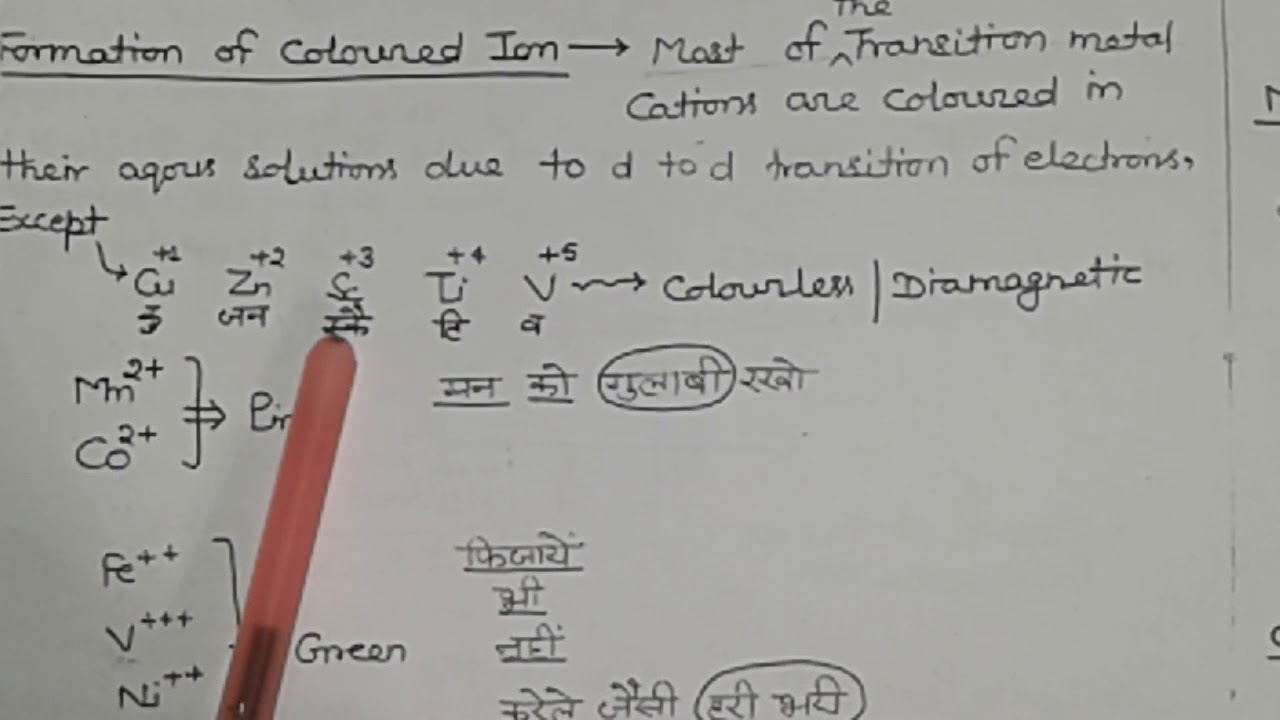 Formation of Coloured Ion → Most of The Transition metal
Cations are coloured in
their aqous solutions due to d to d transition of electrons,
Except
Cu+1 Zn+2 Sc+3 Ti+4 V+5 → Colourless | Diamagnetic
जन स्कै टि व
Mn2+
Co2+
मन को गुलाबी रखो
Fe++
V+++
Ni++
Green
फिजायें
भी
नहीं
करेले जैसी हरी भरी